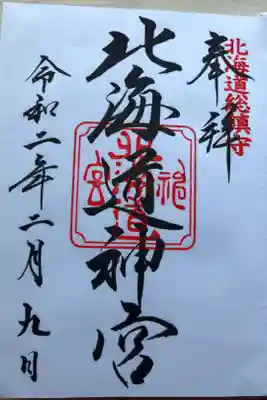 奉拝
北海道総鎮守
北海道神宮
令和二年二月九日